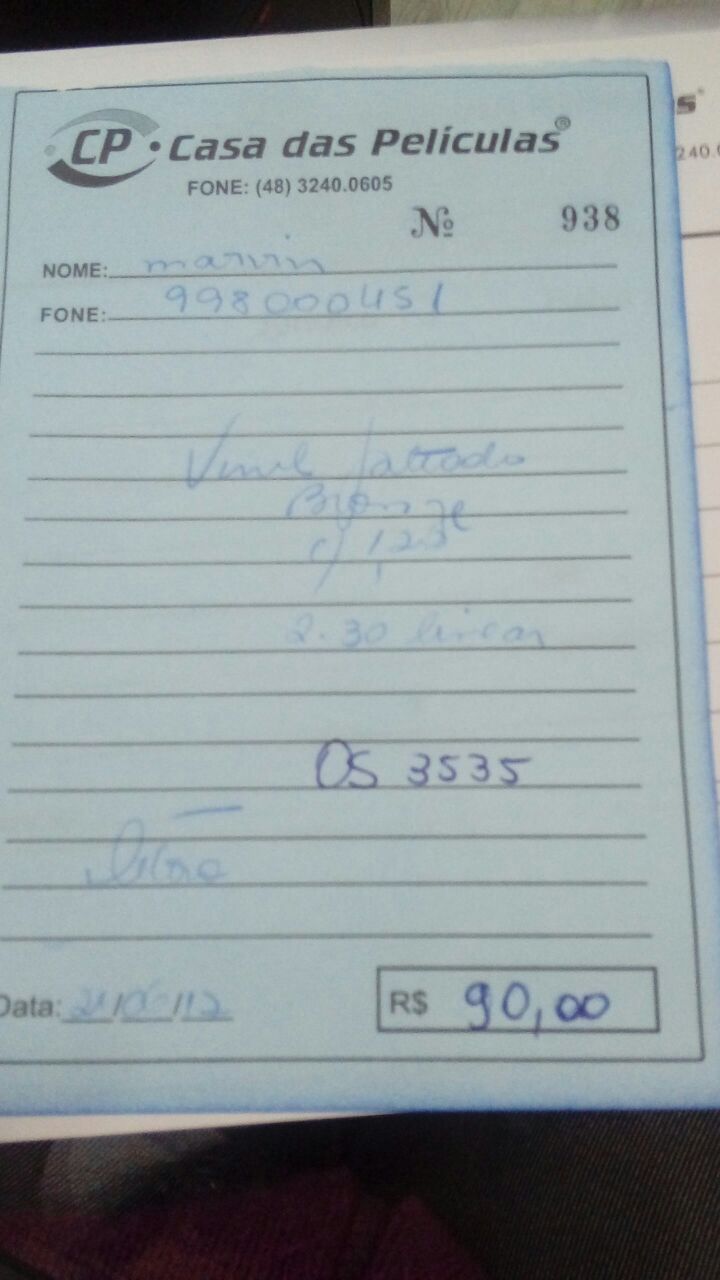 CP • Casa das Películas®
FONE: (48) 3240.0605
Nº 938
NOME: marvin
FONE: 998000451
Vinil Jateado
Bronze
c/ 1,23
2.30 linear
OS 3535
Data: / /12
R$ 90,00
s®
240.